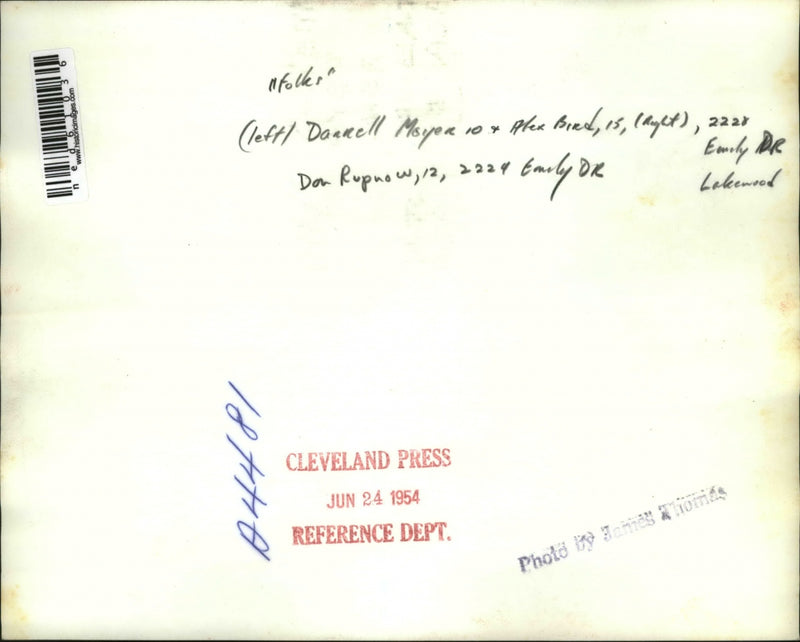 "Folks"
(left) Darrell Moyer 10 + Alex Bird, 15, (right), 2228
Emily DR
Don Rupnow, 12, 2224 Emily DR
Lakewood
ned61036
www.historicimages.com
A4481
CLEVELAND PRESS
JUN 24 1954
REFERENCE DEPT.
Photo by James Thomas